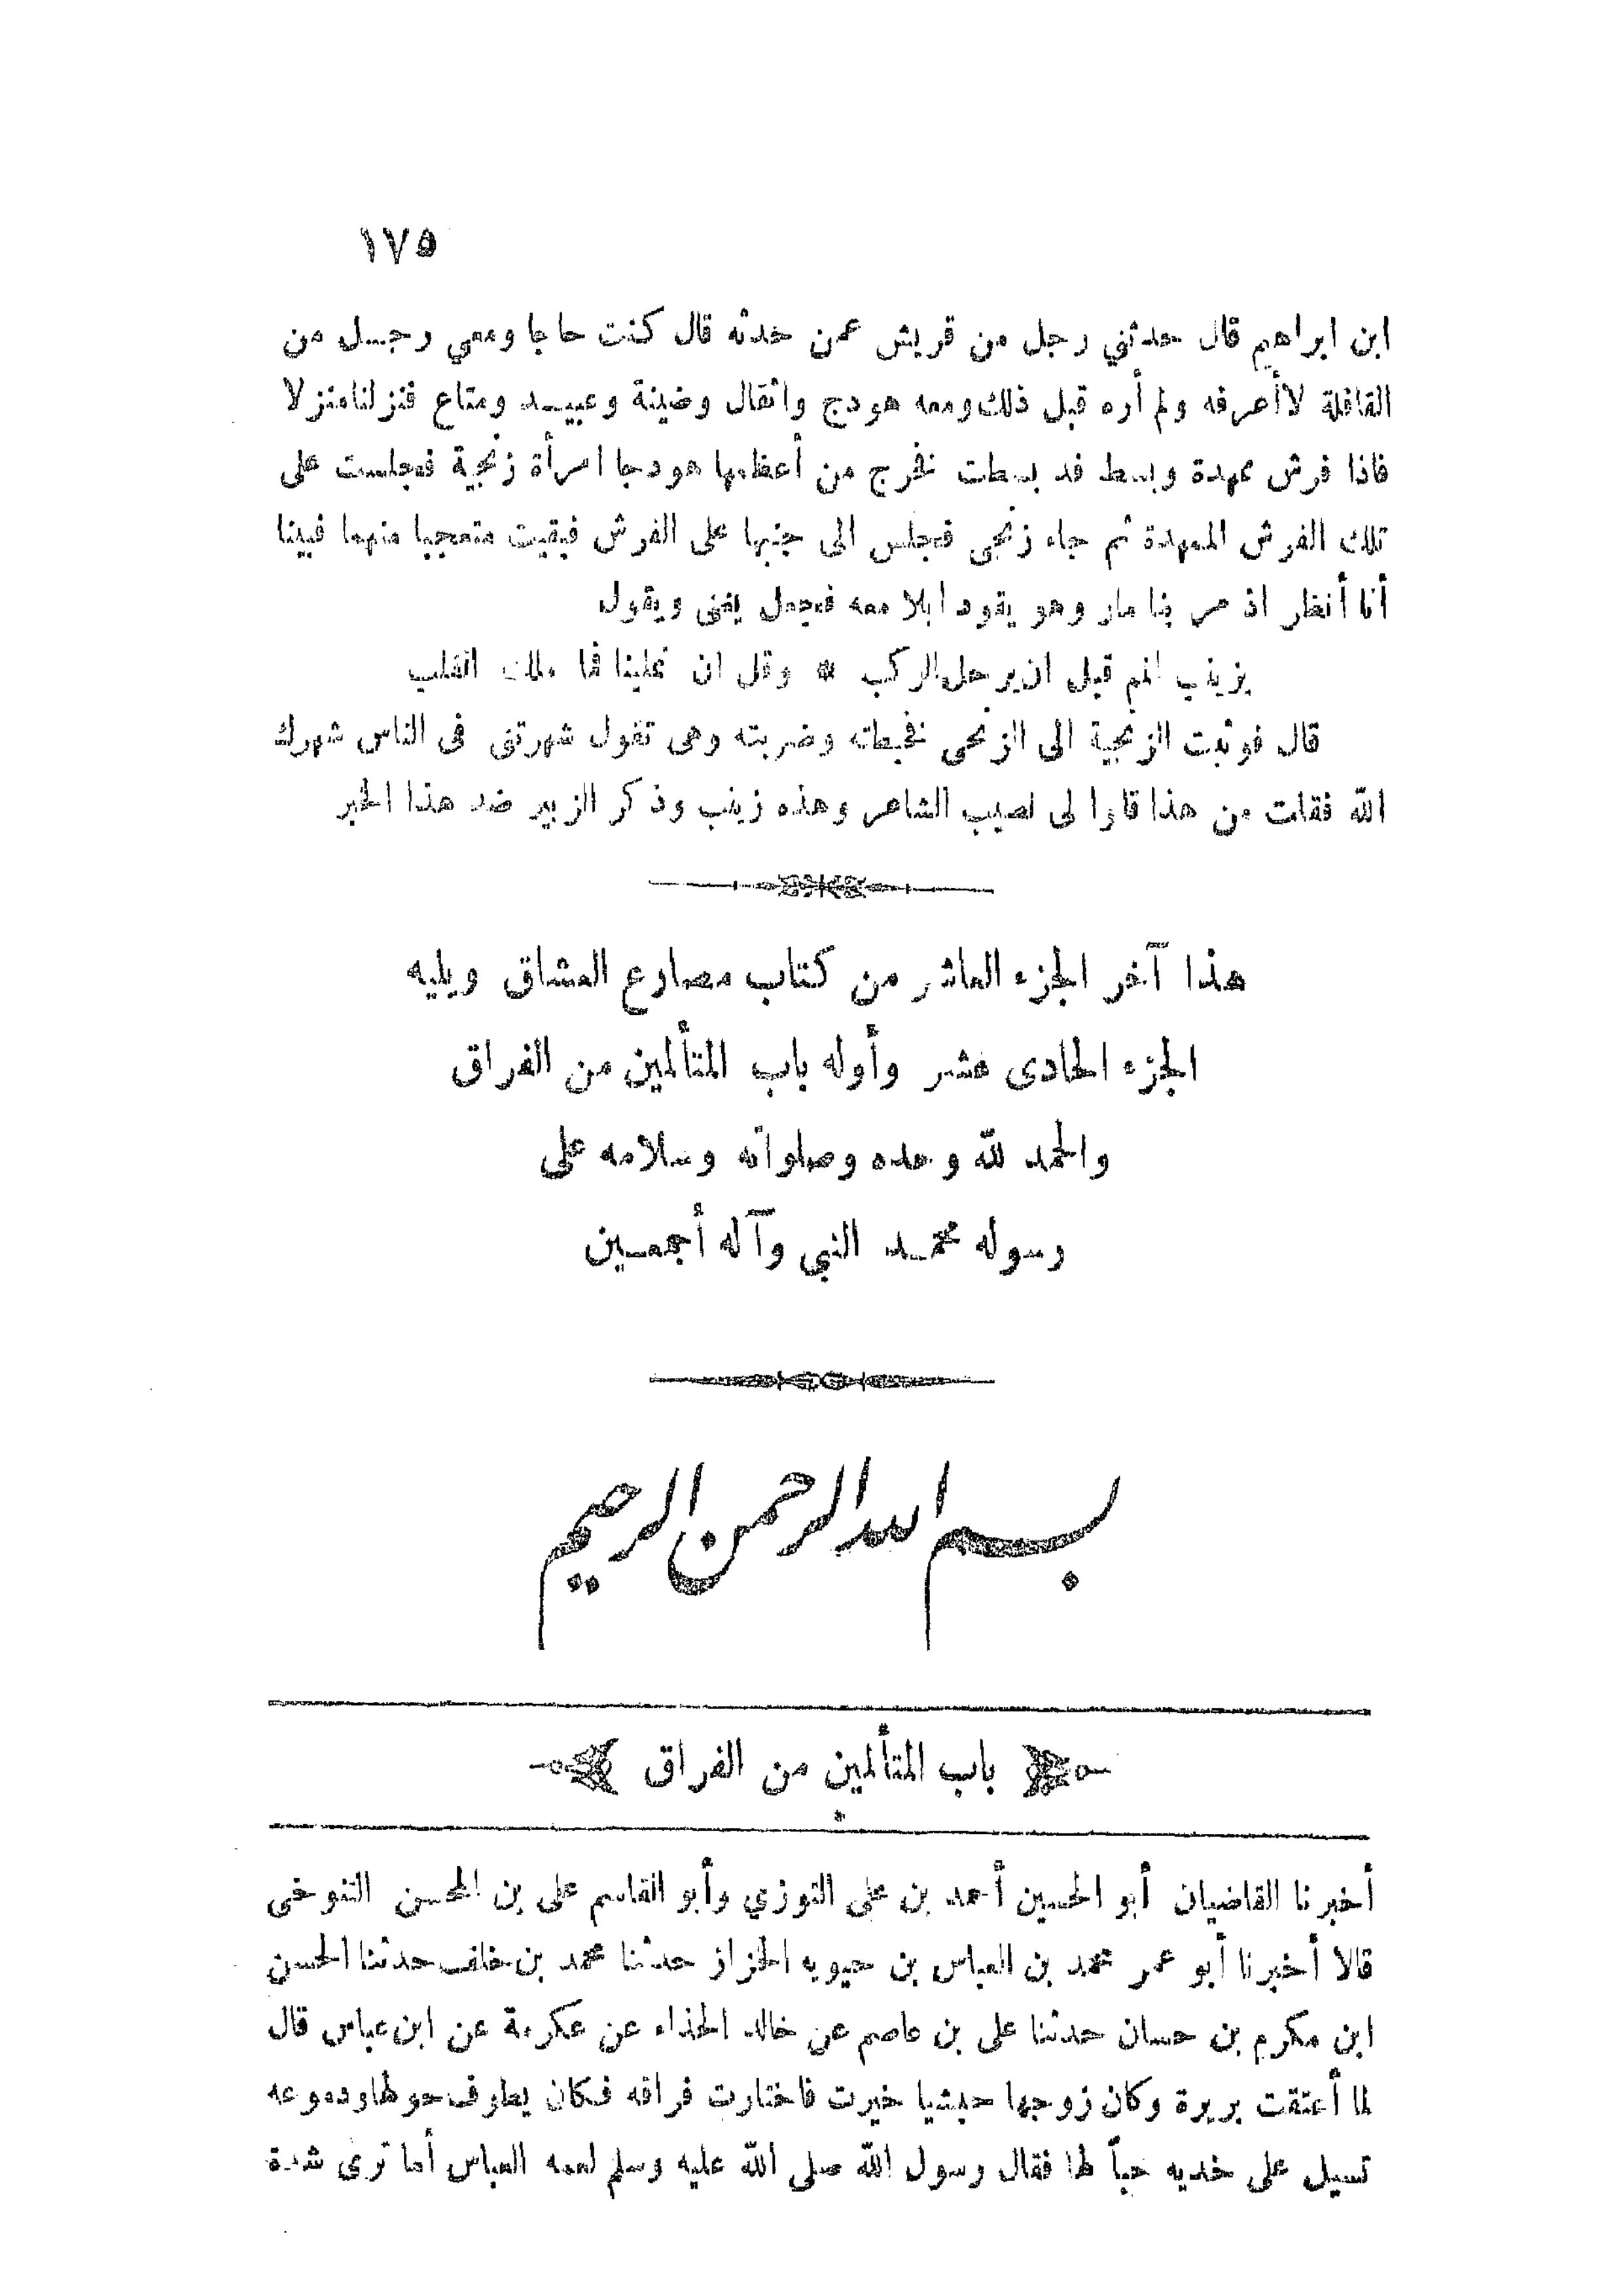 ١٧٥
ابن ابراهيم قال حدثني رجل من قريش عمن حدثه قال كنت حاجا ومعي رجل من
القافلة لاأعرفه ولم أره قبل ذلك ومعه هودج واثقال وضينة وعبيد ومتاع فنزلنا منزلا
فاذا فرش ممهدة وبسط قد بسطت فخرج من أعظمها هودجا امرأة زنجية فجلست على
تلك الفرش الممهدة ثم جاء زنجى فجلس الى جنبها على الفرش فبقيت متعجبا منهما فبينا
أنا أنظر اذ مر بنا مار وهو يقود ابلا معه فجعل يغنى ويقول
بزينب المم قبل ان يرحل الركب * وقل ان تملينا فما ملك القلب
قال فوثبت الزنجية الى الزنجى فخبطته وضربته وهى تقول شهرتنى فى الناس شهرك
الله فقلت من هذا قالوا لى نصيب الشاعر وهذه زينب وذكر الزبير ضد هذا الخبر
هذا آخر الجزء العاشر من كتاب مصارع العشاق ويليه
الجزء الحادى عشر وأوله باب المتألمين من الفراق
والحمد لله وحده وصلواته وسلامه على
رسوله محمد النبي وآله أجمعين
بسم الله الرحمن الرحيم
باب المتألمين من الفراق
أخبرنا القاضيان أبو الحسين أحمد بن على التوزي وأبو القاسم على بن المحسن التنوخى
قالا أخبرنا أبو عمر محمد بن العباس بن حيويه الخزاز حدثنا محمد بن خلف حدثنا الحسن
ابن مكرم بن حسان حدثنا على بن عاصم عن خالد الحذاء عن عكرمة عن ابن عباس قال
لما أعتقت بريرة وكان زوجها حبشيا خيرت فاختارت فراقه فكان يطوف حولها ودموعه
تسيل على خديه حباً لها فقال رسول الله صلى الله عليه وسلم لعمه العباس أما ترى شدة